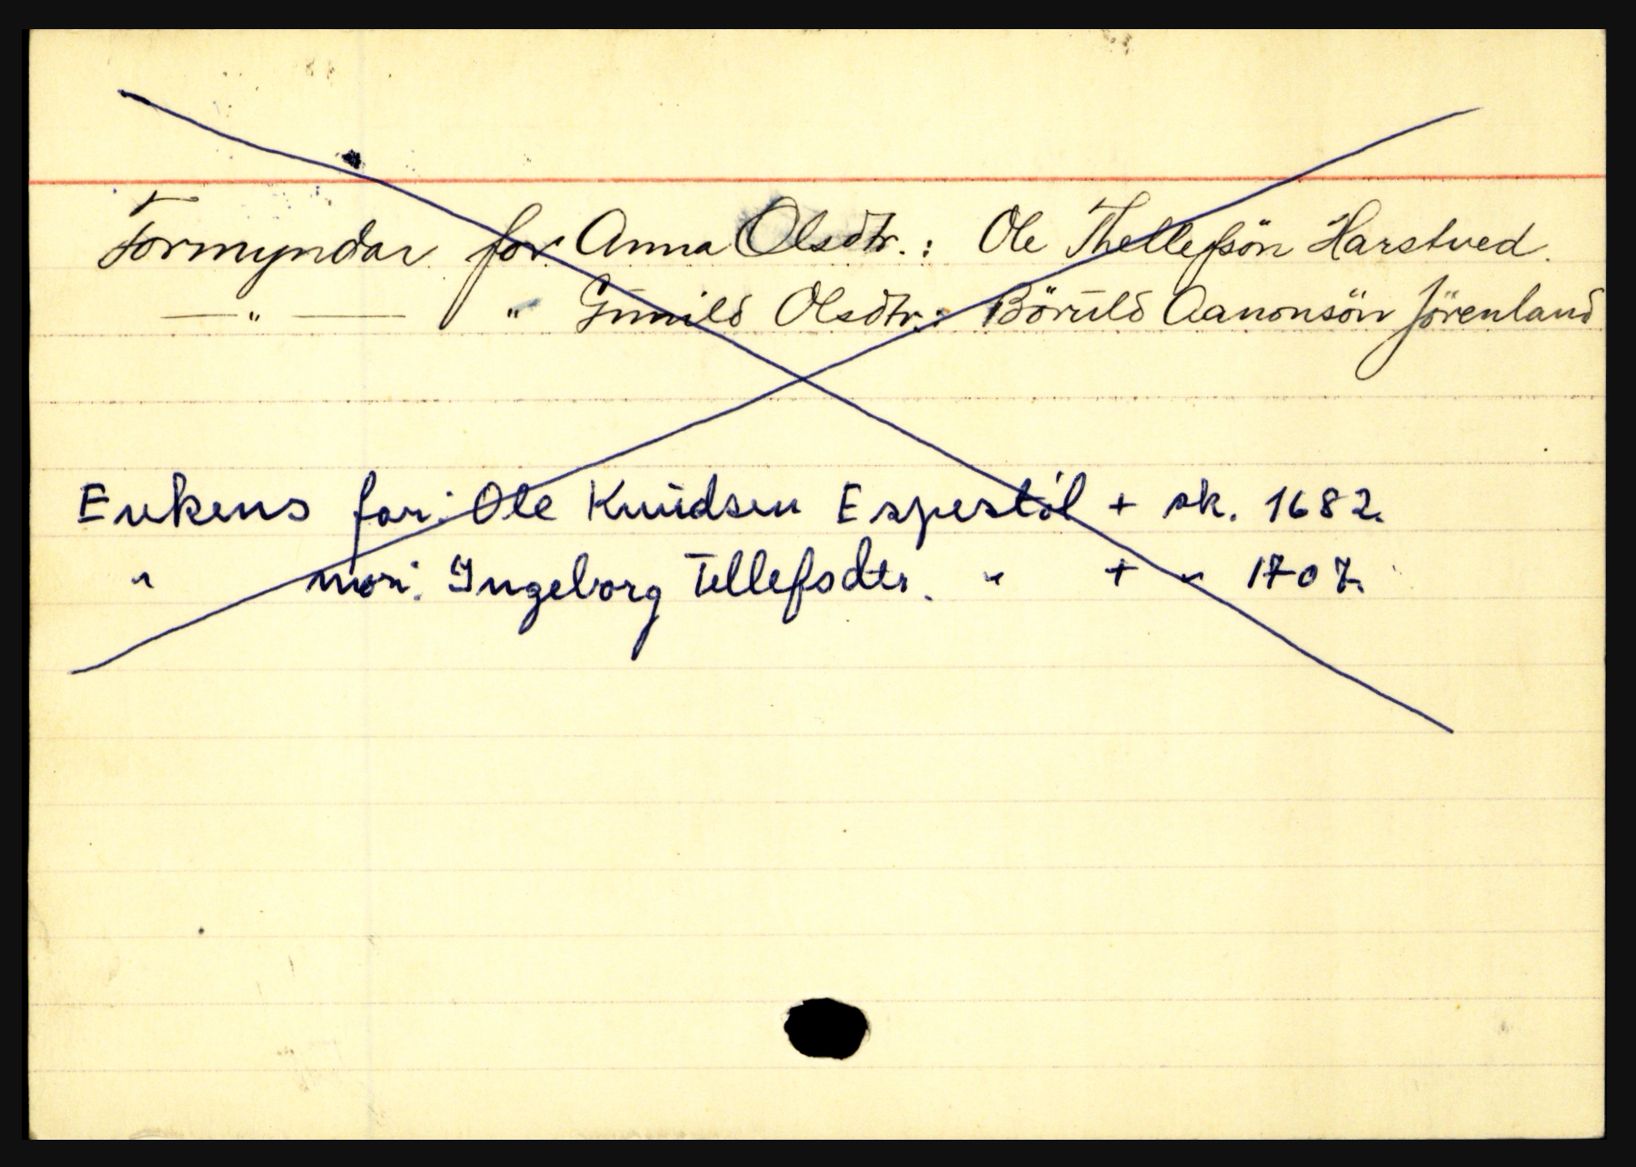 Formyndar for Anna Olsdtr.: Ole Thellefsön Harstved.
— " — " Gunild Olsdtr.: Böruld Aanonsön Jörenland
Enkens far: Ole Knudsen Espestöl + sk. 1682.
" mor: Ingeborg Tellefsdtr. " + " 1707.